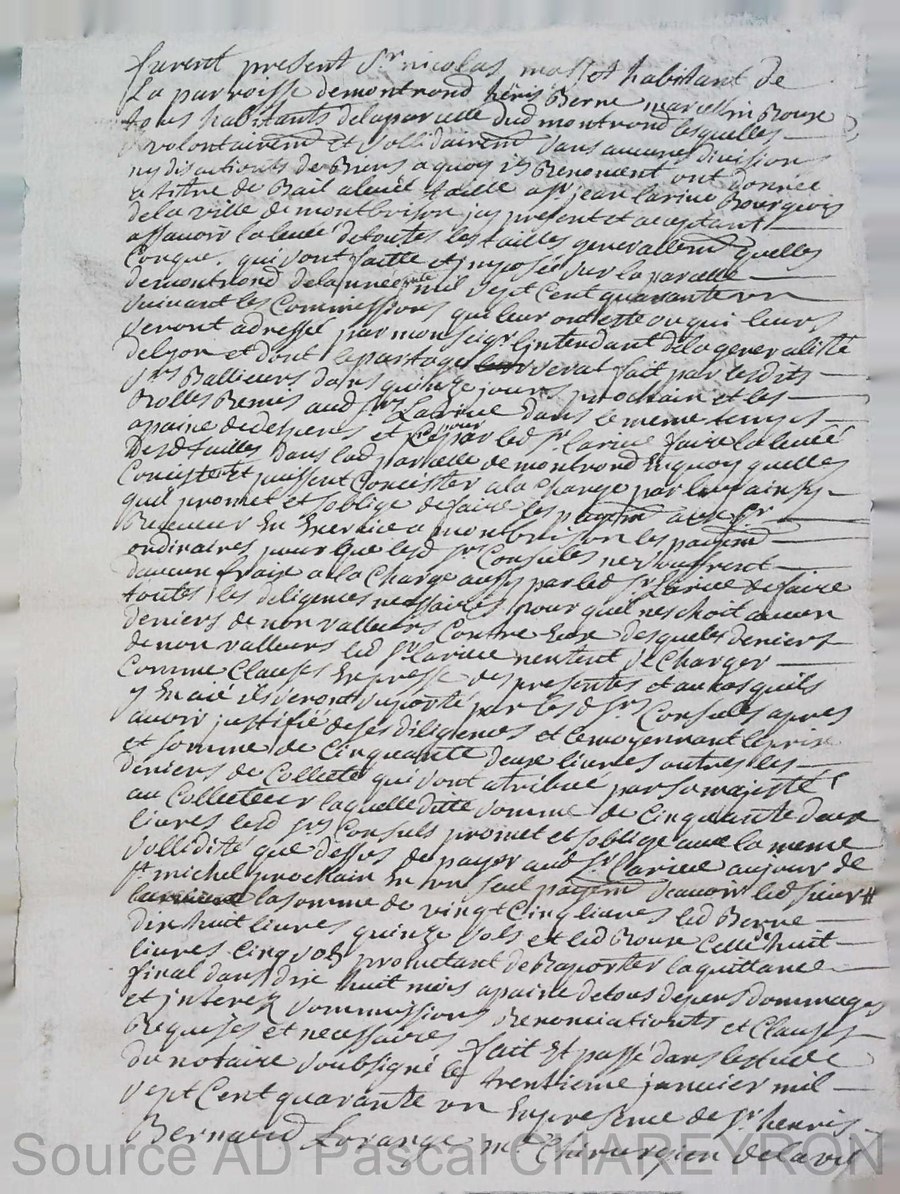 furent present Sr nicolas masset habitant de
La parroisse demontrond hénis Berne marcellin Roux
tous habitants delaparcelle dud montrond lesquelles
volontairemt et sollidairemt sans aucune division
ny discutionts de Biens a quoy ils Renoncent ont donnée
a titre de Bail aleuée taille a Sr jean larive Bourgois
dela ville demontbrison jcy present et aceptant
assavoir laleuée detoutes les tailles generallemt quelles
Conque, qui sont faitte et jmposée sur la parcelle
demontrond delannée mil sept Cent quarante un
suivant les Commissions qui leur onteste ou qui leurs
seront adressée par monseigr lintendant dela generaliste
delyon et dont le partage serat fait par lesdits
Srs Ballieurs dans quinze jours prochain et les
Rolles Remis aud Sr Larive dans le meme temps
apaine dedepens et pour led Sr Larive faire la leueé
Desd tailles dans lad parcelle demontrond En quoy quelles
Conciste et puissent Concister ala Charge par
quil promet et soblige defaire les payemt aux Sr
Receveur En Exercice a montbrison les payemt
ordinaires pour que lesd Srs Consules ne souffrent
daucun fraix a la Charge aussy par led Sr Larive de faire
toutes les diligences nessaires pour quil neschoit aucun
deniers de non valleurs Contre Eux desquels deniers
de non valleurs led Sr larive nentent se Charger
Comme Clauses Expresse des presentes et au kas quils
y En aie ils seront suporté par lesd Srs Consules apres
avoir justifié deses diligences et lemoyennant le prix
et somme de Cinquante deux livres outres les
deniers de Collecte qui sont atribué par sa majesté
au Collecteur laquelle ditte somme de Cinquante deux
livres lesd Srs Consuls promet et soblige aux la meme
sollidité que dessus de payer aud Sr Larive aujour de
St michel prochain En un seul payemt scavoir led sieur
la somme de vingt Cinq livres led Berne
dix huit livres quinze sols et led Roux Celle huit
livres Cinq sols promettant de Raporter la quittance
final dans dix huit mois apaine detous depens dommages
et jnterez soummissions Renonciationts et Clauses
Requises et necessaires fait Et passé dans lestude
du notaire soubsigné le trentieme janvier mil
sept Cent quarante un En presence de Sr henris
Bernaud Lorange me Chirurgien de la vil
Source AD Pascal CHAREYRON